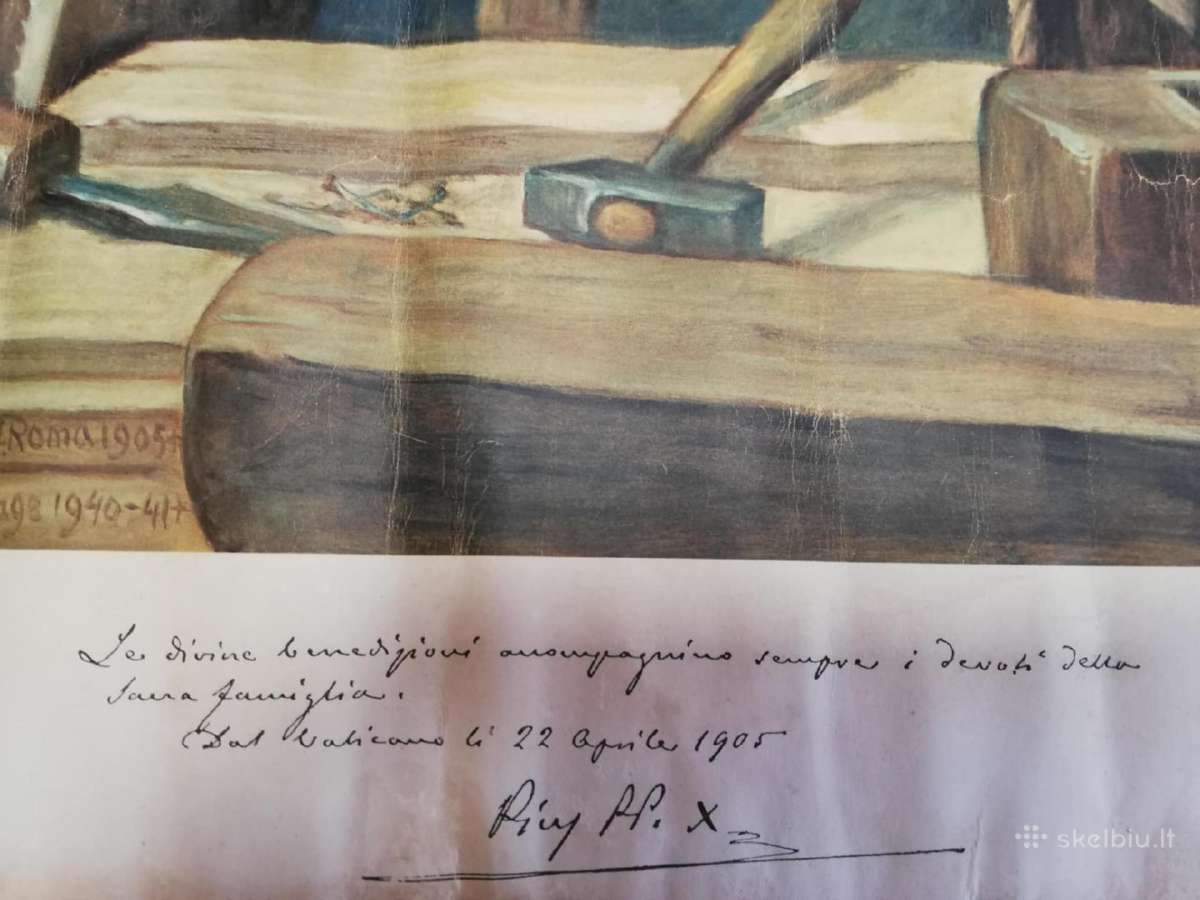 Roma 1905+
1940-41+
Le divine benedizioni accompagnino sempre i devoti della
Sacra famiglia.
Dal Vaticano li 22 Aprile 1905
Pius PP. X
skelbiu.lt